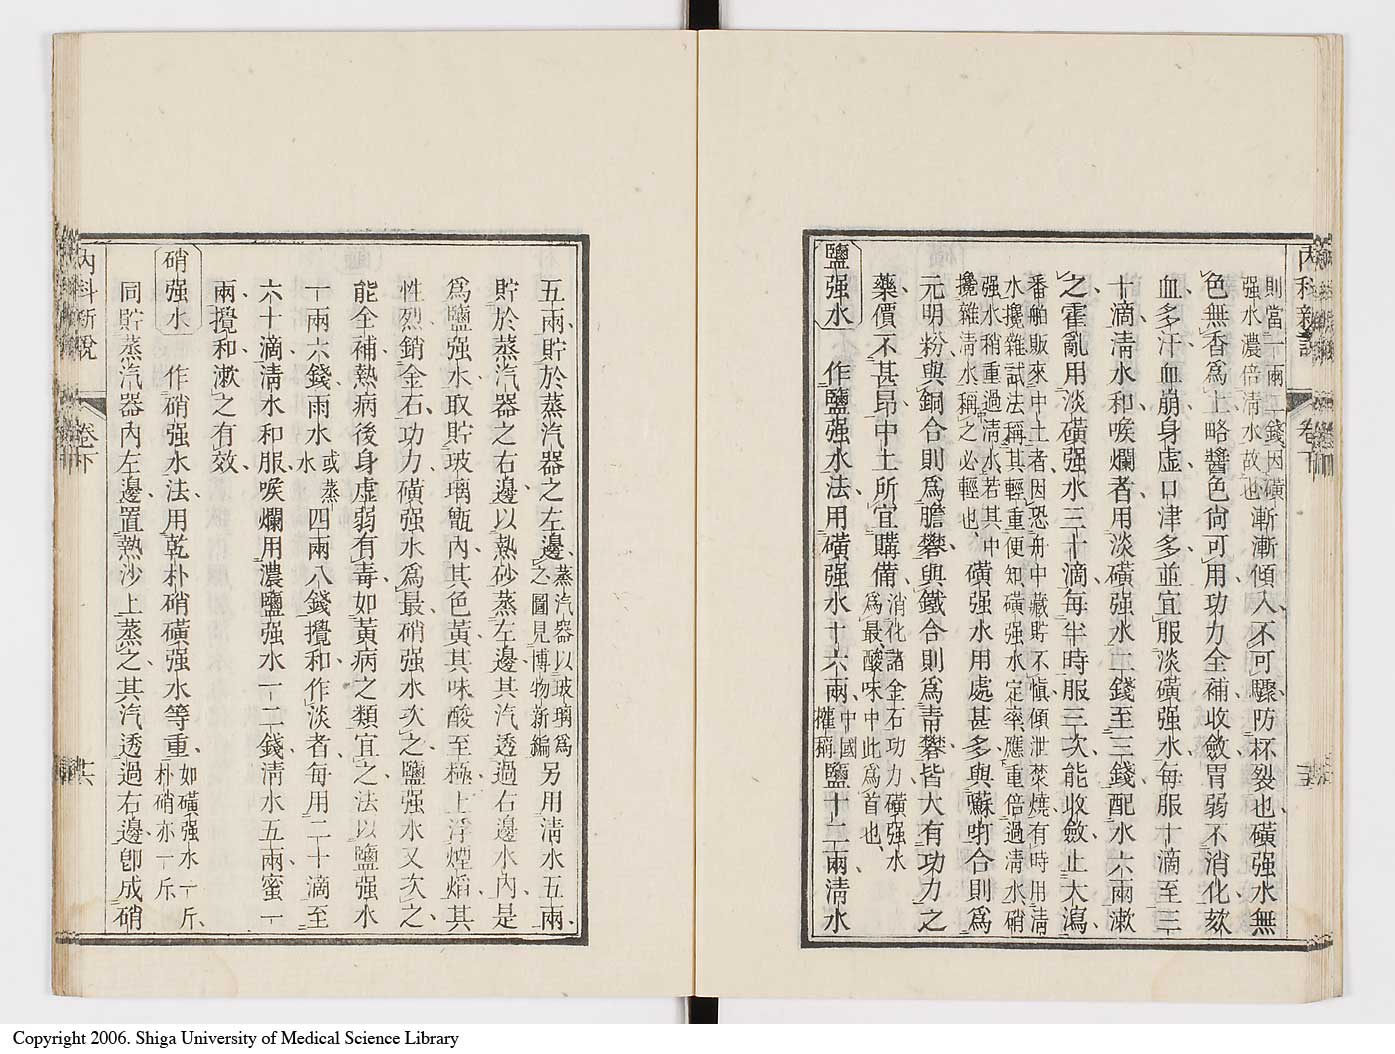 內科新說
卷下
則當一兩二錢因磺
强水濃倍清水故也
漸漸傾入不可驟防杯裂也磺强水無
色無香爲上略醬色尙可用功力全補收斂胃弱不消化欬
血多汗血崩身虛口津多並宜服淡磺强水每服十滴至三
十滴淸水和喉爛者用淡磺强水二錢至三錢配水六兩漱
之霍亂用淡磺强水三十滴每半時服三次能收斂止大瀉
番舶販來中土者因恐舟中藏貯不愼傾泄焚燒有時用淸
水攙雜試法稱其輕重便知磺强水定率應重倍過淸水硝
强水稍重過淸水若其中
攙雜淸水稱之必輕也
磺强水用處甚多與蘇呀合則爲
元明粉與銅合則爲膽礬與鐵合則爲靑礬皆大有功力之
藥價不甚昂中土所宜購備
消化諸金石功力磺强水
爲最酸味中此爲首也
鹽强水
作鹽强水法用磺强水十六兩
中國
權稱
鹽十二兩淸水
五兩貯於蒸汽器之左邊
蒸汽器以玻璃爲
之圖見博物新編
另用淸水五兩
貯於蒸汽器之右邊以熱砂蒸左邊其汽透過右邊水內是
爲鹽强水取貯玻璃甑內其色黃其味酸至極上浮煙熖其
性烈銷金石功力磺强水爲最硝强水次之鹽强水又次之
能全補熱病後身虛弱有毒如黃病之類宜之法以鹽强水
一兩六錢雨水
或蒸
水
四兩八錢攪和作淡者每用二十滴至
六十滴淸水和服喉爛用濃鹽强水一二錢淸水五兩蜜一
兩攪和漱之有效
硝强水
作硝强水法用乾朴硝磺强水等重
如磺强水一斤
朴硝亦一斤
同貯蒸汽器內左邊置熱沙上蒸之其汽透過右邊卽成硝
內科新說
卷下
Copyright 2006. Shiga University of Medical Science Library